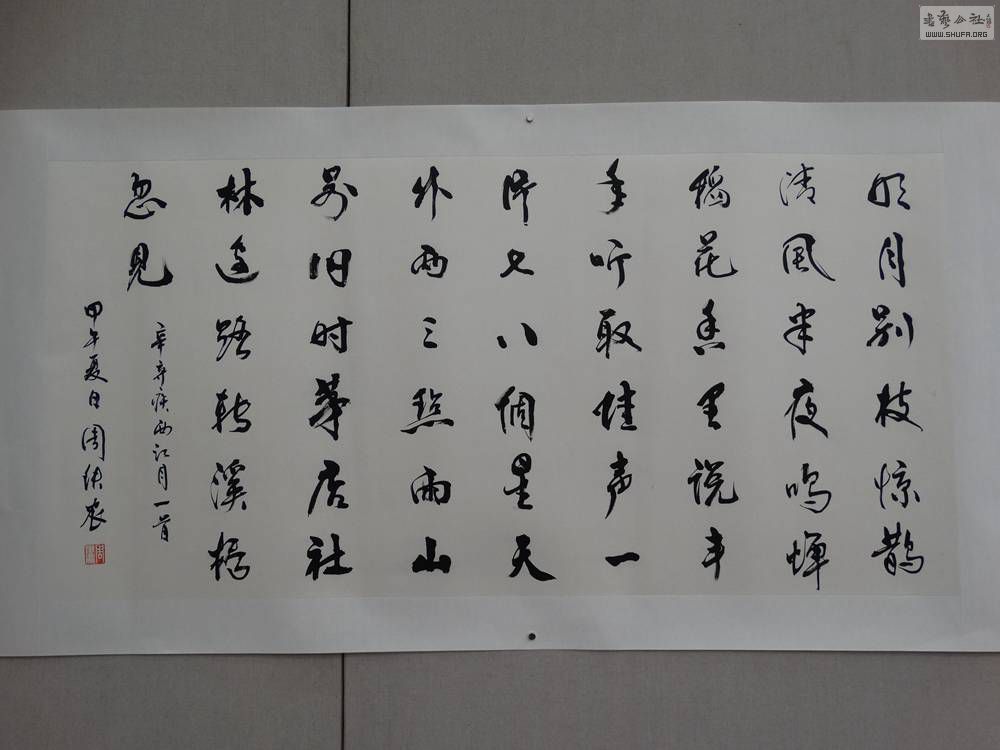 明月别枝惊鹊
清风半夜鸣蝉
稻花香里说丰
年听取蛙声一
片七八個星天
外两三点雨山
前旧时茅店社
林边路转溪桥
忽见
辛弃疾西江月一首
甲午夏日周
書藝公社
WWW.SHUFA.ORG